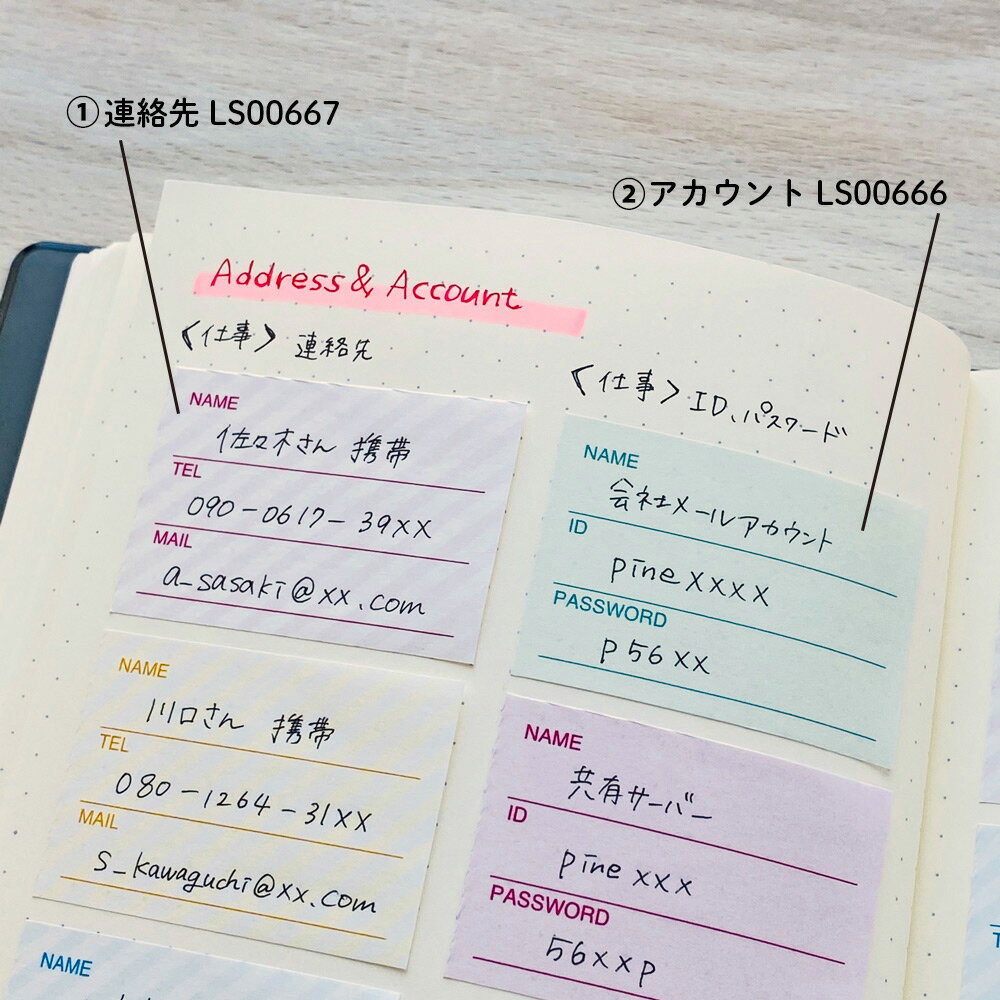 ①連絡先 LS00667
②アカウント LS00666
Address & Account
〈仕事〉 連絡先
NAME
佐々木さん 携帯
TEL
090-0617-39XX
MAIL
a_sasaki@xx.com
NAME
川口さん 携帯
TEL
080-1264-31XX
MAIL
s_kawaguchi@xx.com
NAME
〈仕事〉ID、パスワード
NAME
会社メールアカウント
ID
pinexxxx
PASSWORD
p56xx
NAME
共有サーバー
ID
pinexxx
PASSWORD
56xxp